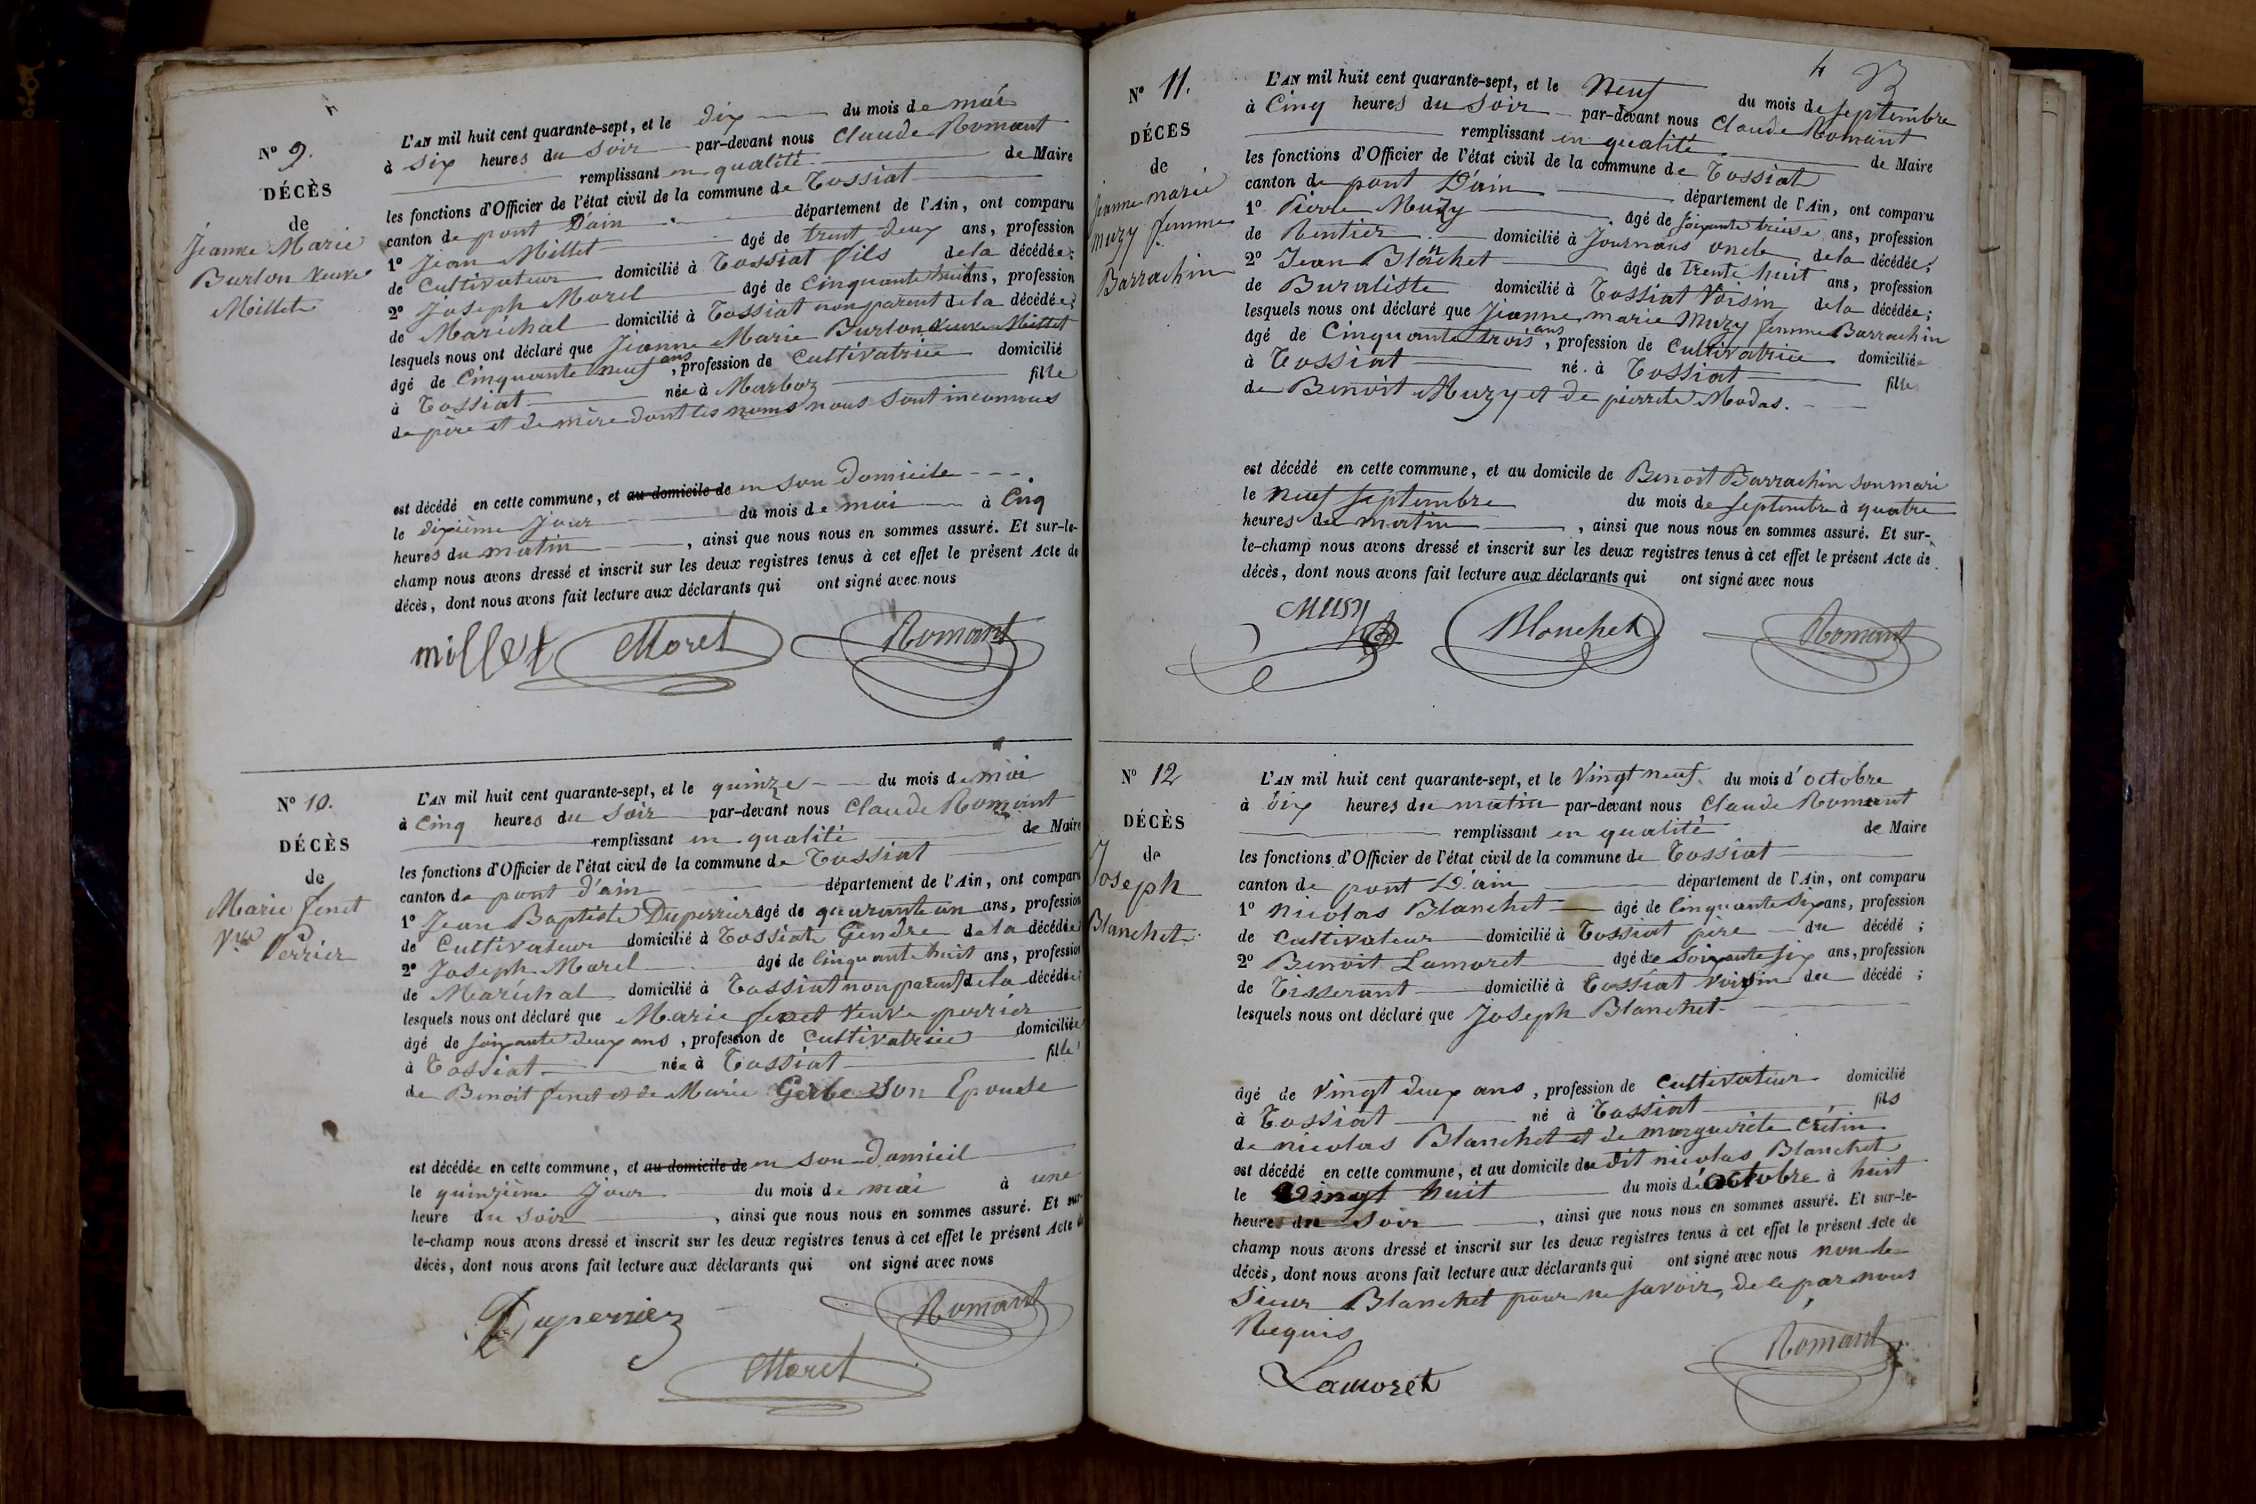 N° 9.
DÉCÈS
de
Jeanne Marie
Burlon veuve
Millet
L'AN mil huit cent quarante-sept, et le dix du mois de mai
à six heures du soir par-devant nous Claude Romant
remplissant en qualité de Maire
les fonctions d'Officier de l'état civil de la commune de Tossiat
canton de pont D'ain département de l'Ain, ont comparu
1° Jean Millet âgé de trent deux ans, profession
de Cultivateur domicilié à Tossiat fils de la décédée;
2° Joseph Morel âgé de Cinquante huit ans, profession
de Maréchal domicilié à Tossiat non parent de la décédée;
lesquels nous ont déclaré que Jeanne Marie Burlon veuve Millet
âgé de Cinquante neuf ans, profession de Cultivatrice domicilié
à Tossiat née à Marboz fille
de père et de mère dont les noms nous sont inconnus
est décédé en cette commune, et au domicile de en son Domicile
le dixième jour du mois de mai à Cinq
heures du matin, ainsi que nous nous en sommes assuré. Et sur-le-
champ nous avons dressé et inscrit sur les deux registres tenus à cet effet le présent Acte de
décès, dont nous avons fait lecture aux déclarants qui ont signé avec nous
millet Morel Romant
N° 10.
DÉCÈS
de
Marie fenet
Vve Perrier
L'AN mil huit cent quarante-sept, et le quinze du mois de mai
à Cinq heures du Soir par-devant nous Claude Romant
remplissant en qualité de Maire
les fonctions d'Officier de l'état civil de la commune de Tossiat
canton de pont d'ain département de l'Ain, ont comparu
1° Jean Baptiste Duperrier âgé de quarante un ans, profession
de Cultivateur domicilié à Tossiat Gendre de la décédée
2° Joseph Morel âgé de Cinquante huit ans, profession
de Maréchal domicilié à Tossiat non parent de la décédée;
lesquels nous ont déclaré que Marie fenet Veuve perrier
âgé de soixante deux ans, profession de Cultivatrice domiciliée
à Tossiat née à Tossiat fille
de Benoit fenet et de Marie Gerbe son Epouse
est décédée en cette commune, et au domicile de en son Domicil
le quinzième jour du mois de mai à une
heure du soir, ainsi que nous nous en sommes assuré. Et sur-
le-champ nous avons dressé et inscrit sur les deux registres tenus à cet effet le présent Acte de
décès, dont nous avons fait lecture aux déclarants qui ont signé avec nous
Duperriez Romant
Morel
4
N° 11.
DÉCÈS
de
Jeanne marie
muzy femme
Barrachin
L'AN mil huit cent quarante-sept, et le Neuf du mois de septembre
à Cinq heures du Soir par-devant nous Claude Romant
remplissant en qualité de Maire
les fonctions d'Officier de l'état civil de la commune de Tossiat
canton de pont D'ain département de l'Ain, ont comparu
1° Pierre Muzy âgé de soixante treise ans, profession
de Rentier domicilié à Journans oncle de la décédée;
2° Jean Blanchet âgé de trente huit ans, profession
de Buraliste domicilié à Tossiat Voisin de la décédée;
lesquels nous ont déclaré que Jeanne marie Muzy femme Barrachin
âgé de Cinquante trois ans, profession de Cultivatrice domiciliée
à Tossiat né à Tossiat fille
de Benoit Muzy et de pierrete Modas.
est décédé en cette commune, et au domicile de Benoit Barrachin son mari
le neuf septembre du mois de septembre à quatre
heures du matin, ainsi que nous nous en sommes assuré. Et sur-
le-champ nous avons dressé et inscrit sur les deux registres tenus à cet effet le présent Acte de
décès, dont nous avons fait lecture aux déclarants qui ont signé avec nous
Musy Blanchet Romant
N° 12
DÉCÈS
de
Joseph
Blanchet
L'AN mil huit cent quarante-sept, et le Vingt neuf du mois d'octobre
à dix heures du matin par-devant nous Claude Romant
remplissant en qualité de Maire
les fonctions d'Officier de l'état civil de la commune de Tossiat
canton de pont D'ain département de l'Ain, ont comparu
1° nicolas Blanchet âgé de Cinquante six ans, profession
de Cultivateur domicilié à Tossiat père du décédé;
2° Benoit Lamoret âgé de soixante six ans, profession
de Tisserant domicilié à Tossiat Voisin du décédé;
lesquels nous ont déclaré que Joseph Blanchet
âgé de Vingt deux ans, profession de Cultivateur domicilié
à Tossiat né à Tossiat fils
de nicolas Blanchet et de marguerite Crétin
est décédé en cette commune, et au domicile du dit nicolas Blanchet
le Vingt huit du mois d'octobre à huit
heures du soir, ainsi que nous nous en sommes assuré. Et sur-le-
champ nous avons dressé et inscrit sur les deux registres tenus à cet effet le présent Acte de
décès, dont nous avons fait lecture aux déclarants qui ont signé avec nous non le
Sieur Blanchet pour ne savoir, de le par nous
Requis
Lamoret Romant